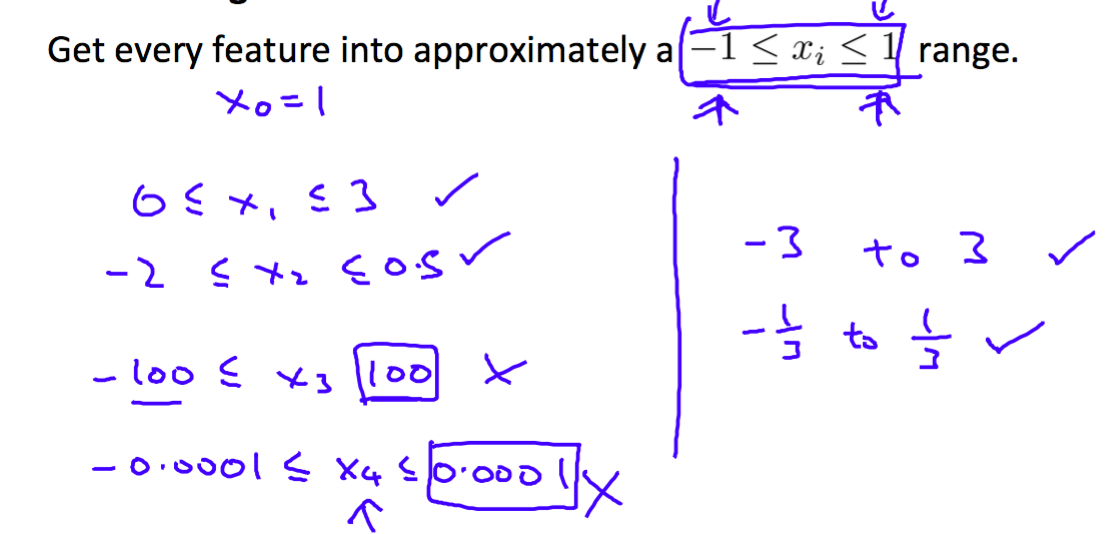 Get every feature into approximately a −1 ≤ xᵢ ≤ 1 range.
x₀ = 1
0 ≤ x₁ ≤ 3 ✓
-2 ≤ x₂ ≤ 0.5 ✓
-100 ≤ x₃ 100 ×
-0.0001 ≤ x₄ ≤ 0.0001 ×
-3 to 3 ✓
-1/3 to 1/3 ✓